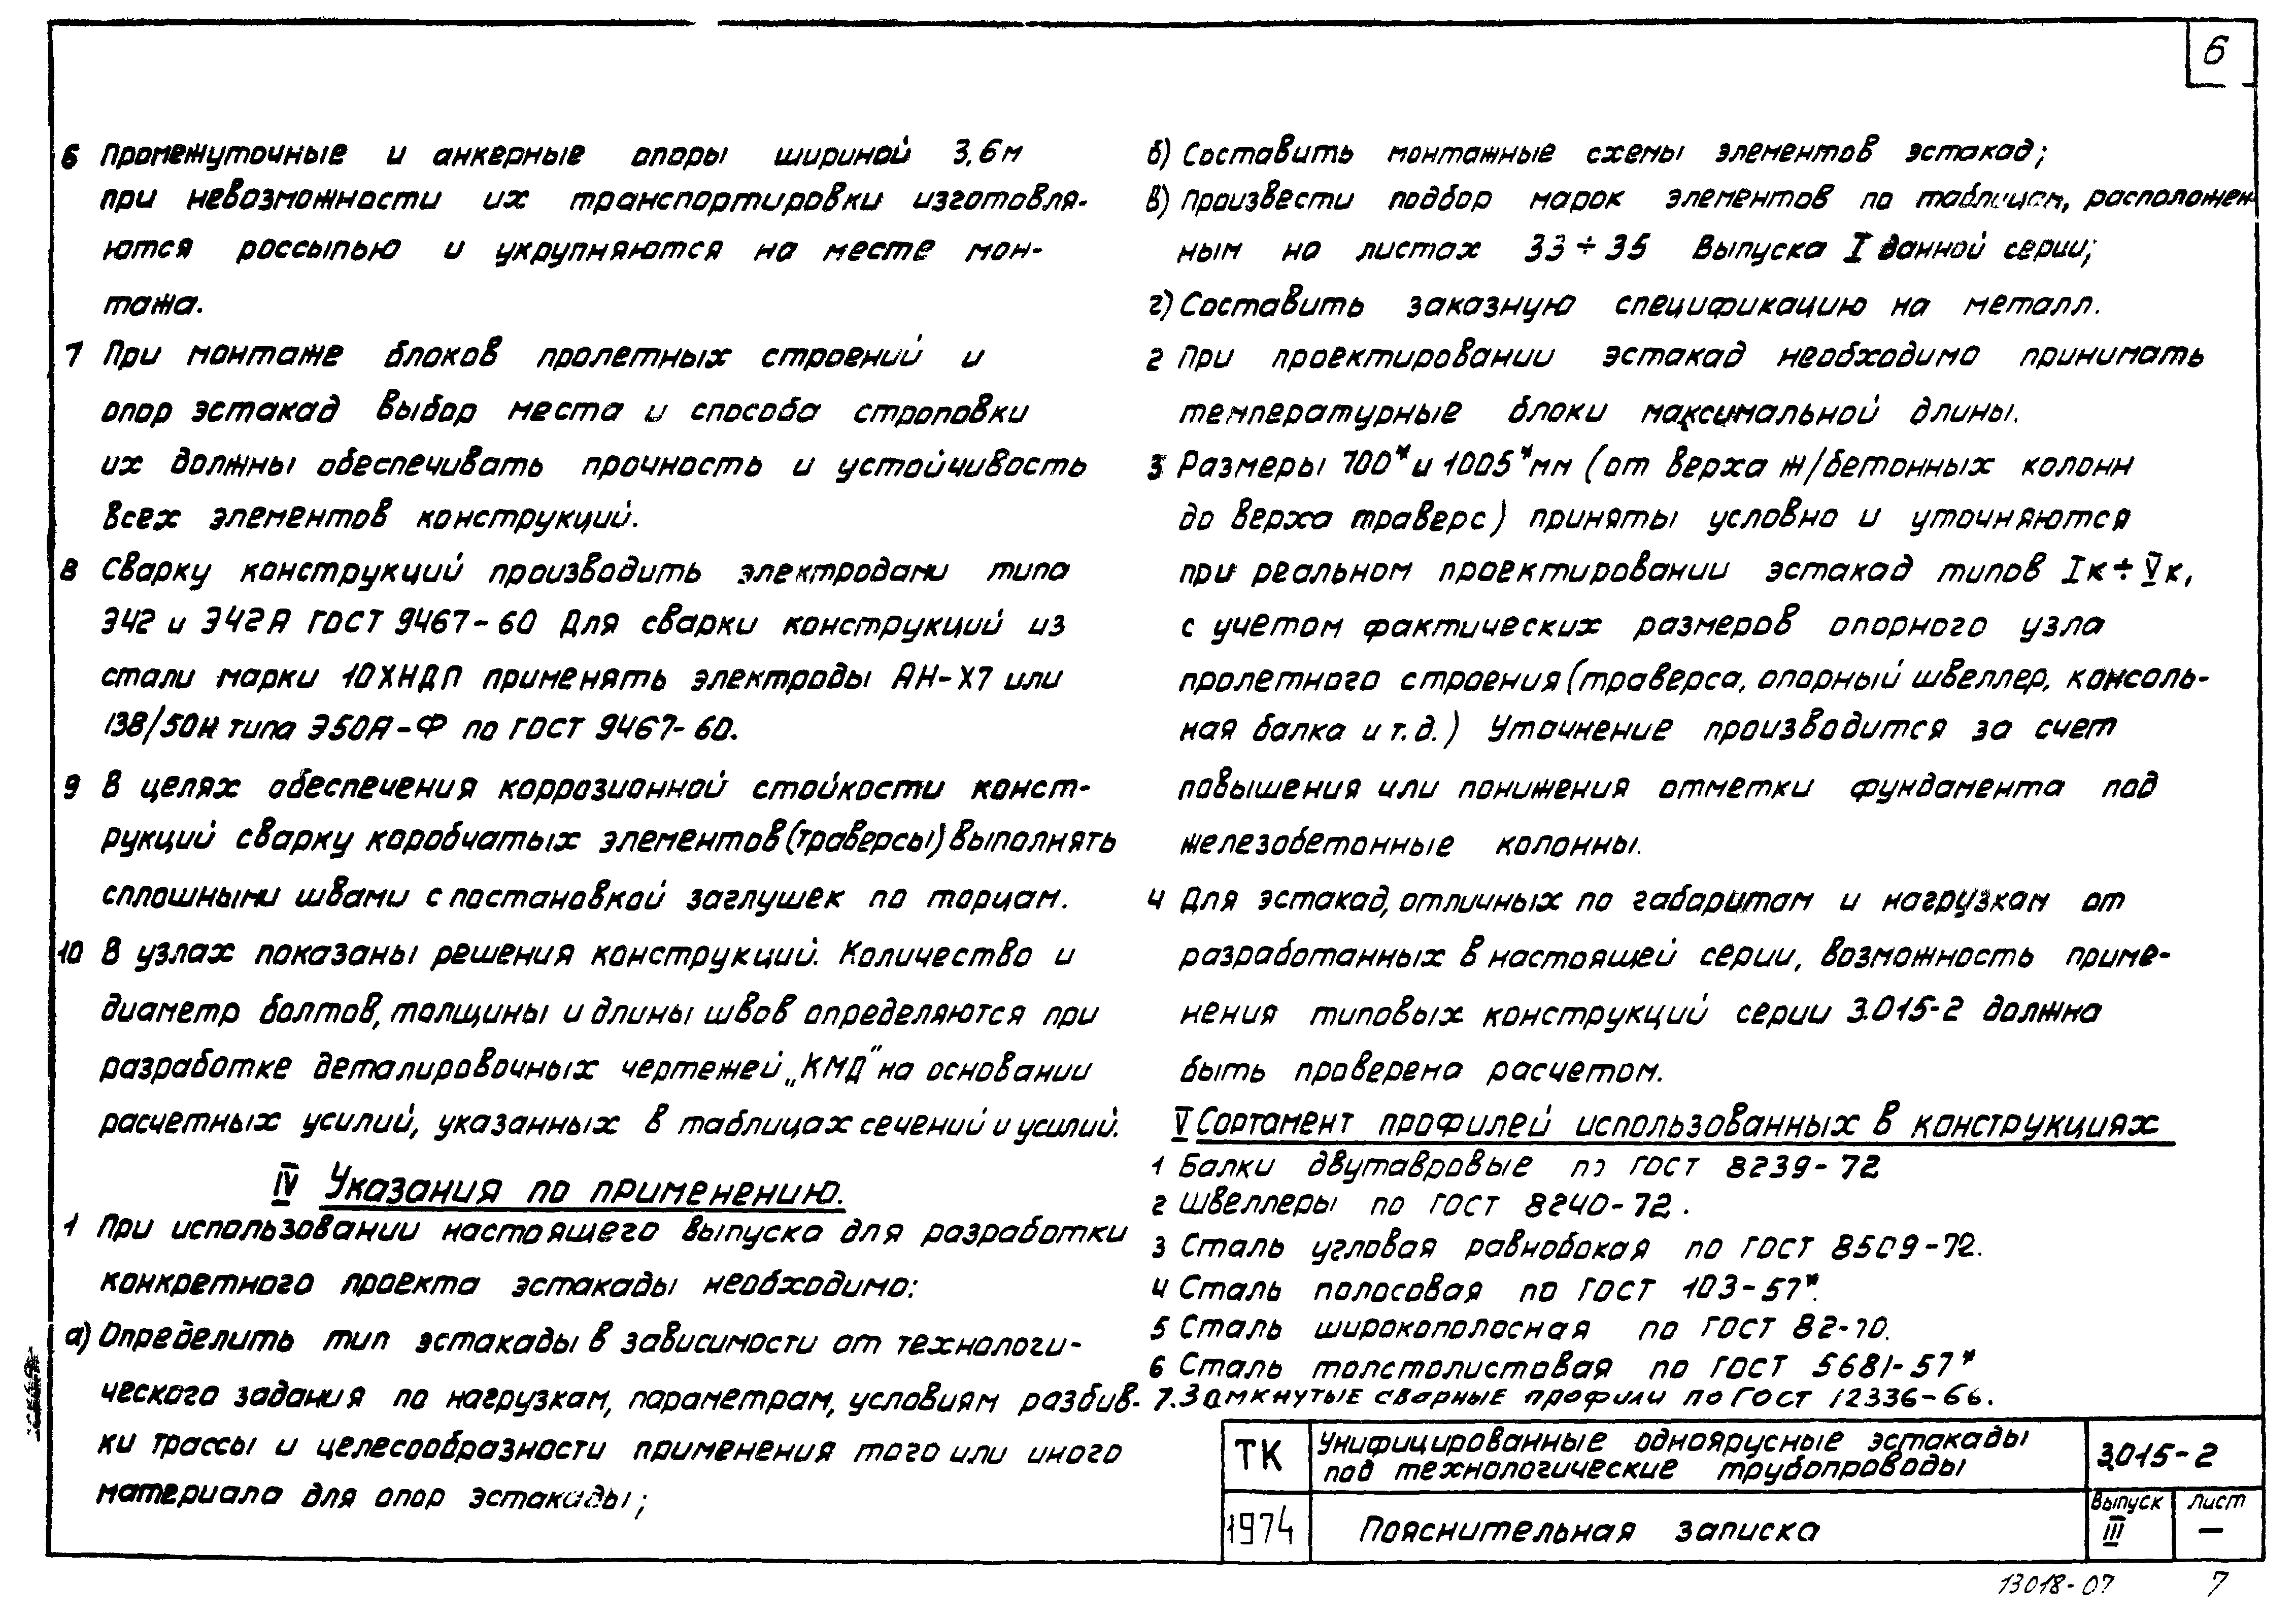 6
6 Промежуточные и анкерные опоры шириной 3,6м
при невозможности их транспортировки изготовля-
ются россыпью и укрупняются на месте мон-
тажа.
7 При монтаже блоков пролетных строений и
опор эстакад выбор места и способа строповки
их должны обеспечивать прочность и устойчивость
всех элементов конструкций.
8 Сварку конструкций производить электродами типа
Э42 и Э42А ГОСТ 9467-60 Для сварки конструкций из
стали марки 10ХНДП применять электроды АН-Х7 или
138/50Н типа Э50А-Ф по ГОСТ 9467-60.
9 В целях обеспечения коррозионной стойкости конст-
рукций сварку коробчатых элементов (траверсы) выполнять
сплошными швами с постановкой заглушек по торцам.
10 В узлах показаны решения конструкций. Количество и
диаметр болтов, толщины и длины швов определяются при
разработке деталировочных чертежей „КМД" на основании
расчетных усилий, указанных в таблицах сечений и усилий.
IV Указания по применению.
1 При использовании настоящего выпуска для разработки
конкретного проекта эстакады необходимо:
а) Определить тип эстакады в зависимости от технологи-
ческого задания по нагрузкам, параметрам, условиям разбив-
ки трассы и целесообразности применения того или иного
материала для опор эстакады;
б) Составить монтажные схемы элементов эстакад;
в) Произвести подбор марок элементов по таблицам, расположен
ным на листах 33÷35 Выпуска I данной серии;
г) Составить заказную спецификацию на металл.
2 При проектировании эстакад необходимо принимать
температурные блоки максимальной длины.
3 Размеры 700* и 1005* мм (от верха ж/бетонных колонн
до верха траверс) приняты условно и уточняются
при реальном проектировании эстакад типов Iк÷Vк,
с учетом фактических размеров опорного узла
пролетного строения (траверса, опорный швеллер, консоль-
ная балка и т.д.) Уточнение производится за счет
повышения или понижения отметки фундамента под
железобетонные колонны.
4 Для эстакад, отличных по габаритам и нагрузкам от
разработанных в настоящей серии, возможность приме-
нения типовых конструкций серии 3.015-2 должна
быть проверена расчетом.
V Сортамент профилей использованных в конструкциях
1 Балки двутавровые по ГОСТ 8239-72
2 Швеллеры по ГОСТ 8240-72.
3 Сталь угловая равнобокая по ГОСТ 8509-72.
4 Сталь полосовая по ГОСТ 103-57*.
5 Сталь широкополосная по ГОСТ 82-70.
6 Сталь толстолистовая по ГОСТ 5681-57*
7. Замкнутые сварные профили по ГОСТ 12336-66.
ТК
Унифицированные одноярусные эстакады
под технологические трубопроводы
3.015-2
1974
Пояснительная записка
Выпуск
III
Лист
—
13018-07
7